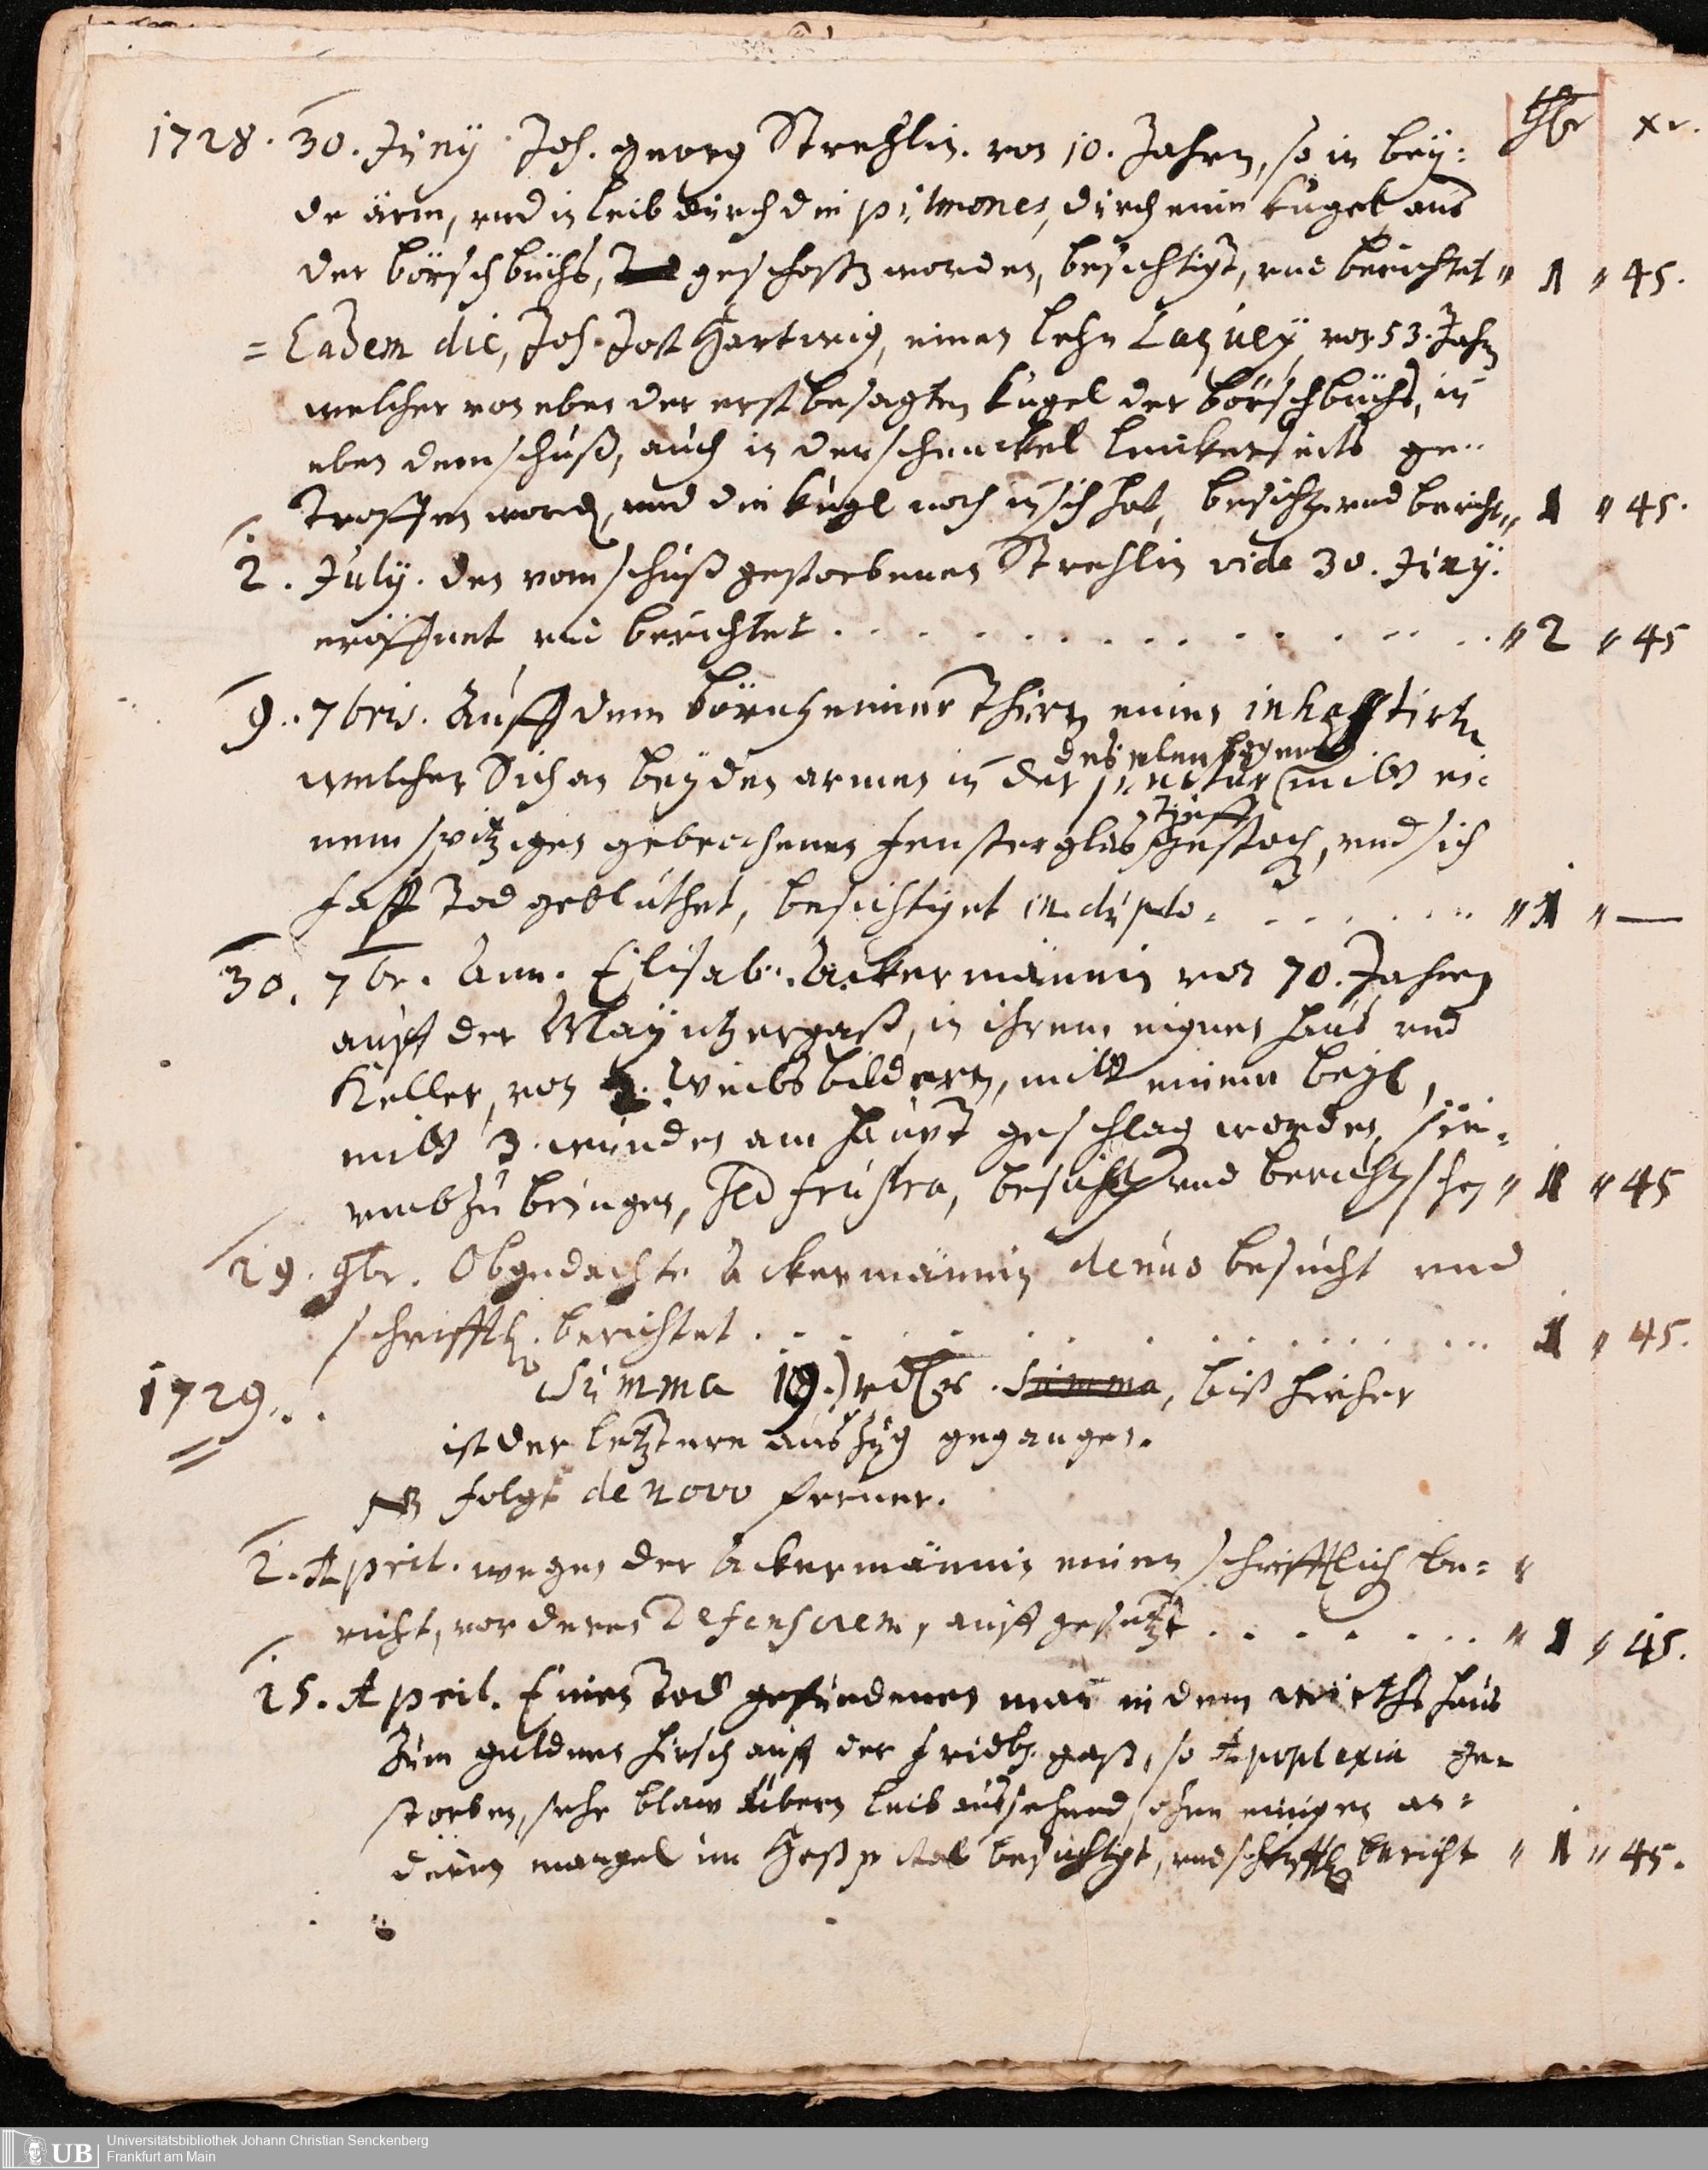 thlr xr.
1728. 30. Juny Joh. georg Strehlin. von 10. Jahren, so in bey:
de ärm, und in leib durch die pulmones, durch einen kugel aus
der börschbüchs, geschossen worden, besichtigt, und berichtet " 1 " 45.
= Eadem die, Joh. Jost Hartwig, einen lehn Laquey, von 53. Jahr
welcher von eben der erst besagten kugel der börschbüchs, in
eben dem schuß, auch in der schenckel linckerseits ge"
troffen word, und die kugl noch in sich hat, besicht. und bericht " 1 " 45.
2. July. den vom schuß gestorbenen Strehlin vide 30. Juny.
eröffnet und berichtet . . . . . . . . . . " 2 " 45
9. 7bris. Auff dem börnheimer Thurn einen inhafftirten
des elenbogens
welcher Sich an beyden armen in der junctur mitt ei:
tieff
nem spitzigen gebrochenen fensterglas gestoch, und sich
fast Tod gebluthet, besichtiget in duplo . . . . . . " 1 " —
30. 7br. Ann. Elisab. Ackermännin von 70. Jahren
auff der Mayntzergaß, in ihrem eignen haus und
Keller, von 2. weibsbildern, mitt einem beyl,
mitt 3. wunden am haupt geschlag worden, sie:
umbzubringen, sed frustra, besicht und bericht " 1 " 45
29. 9br. Obgedachte Ackermännin denuo besucht und
schrifftl. berichtet . . . . . . . . . . 1 " 45.
1729. Summa 19.) Summa, biß hieher
ist der letztere auszug gegangen.
NB folgt de novo ferner.
2. April. wegen der Ackermännin einen schrifftlich be: "
richt, vor deren Defensorem, auffgesetzt . . . . . . " 1 " 45.
25. April. Einen Tod gefundenen man in dem wirthshaus
zum guldnen hirsch auff der fridb. gass, so Apoplexia ge-
storben, sehr blaw übern leib aussehend, ohne einigen an:
dern mangel im Hospital besichtigt, und schrifftl bericht " 1 " 45.
UB Universitätsbibliothek Johann Christian Senckenberg
Frankfurt am Main